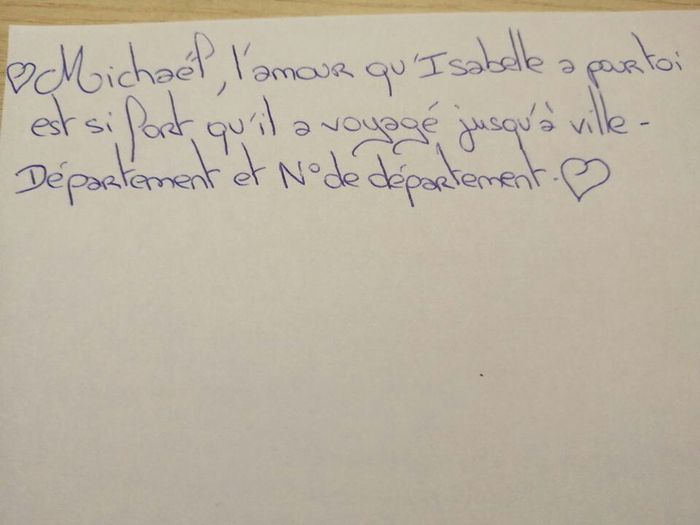 ♡ Michaël, l'amour qu'Isabelle a pour toi
est si fort qu'il a voyagé jusqu'à ville -
Département et N° de département. ♡